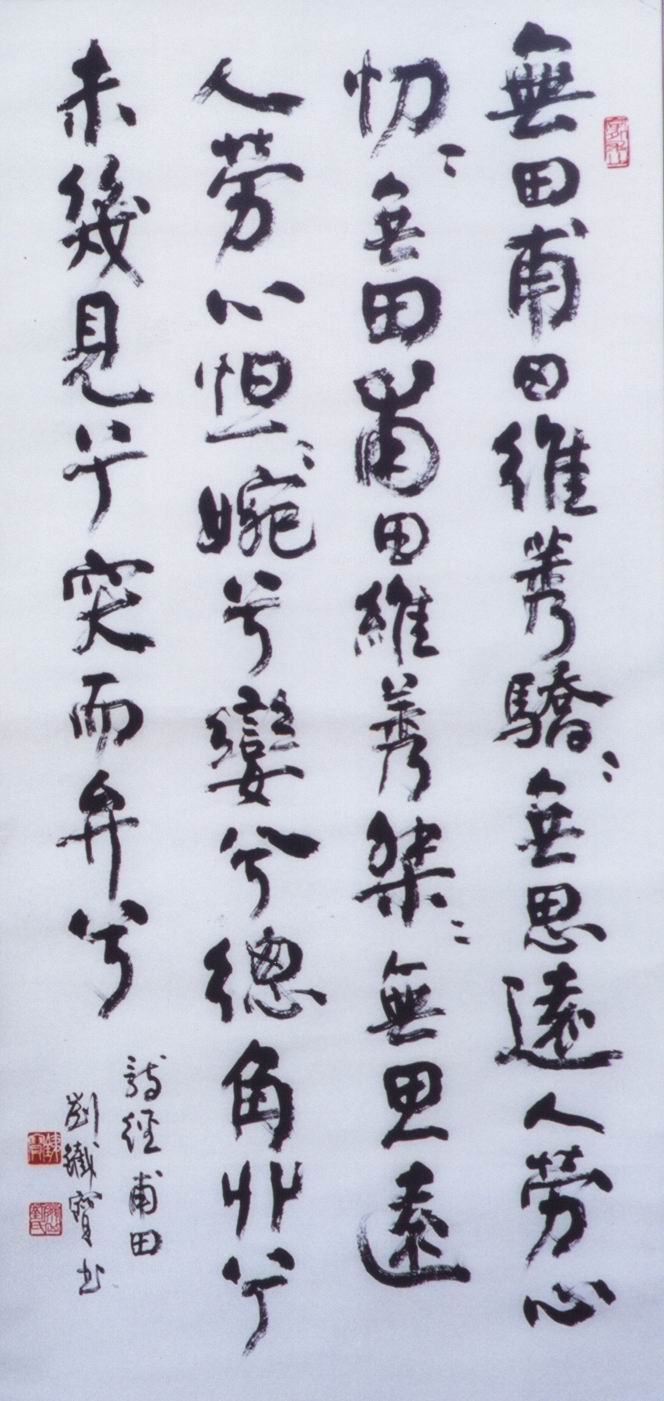 無田甫田維莠驕〻無思遠人勞心
忉〻無田甫田維莠桀〻無思遠
人勞心怛〻婉兮孌兮總角丱兮
未幾見兮突而弁兮
詩經甫田
劉鐵寶书